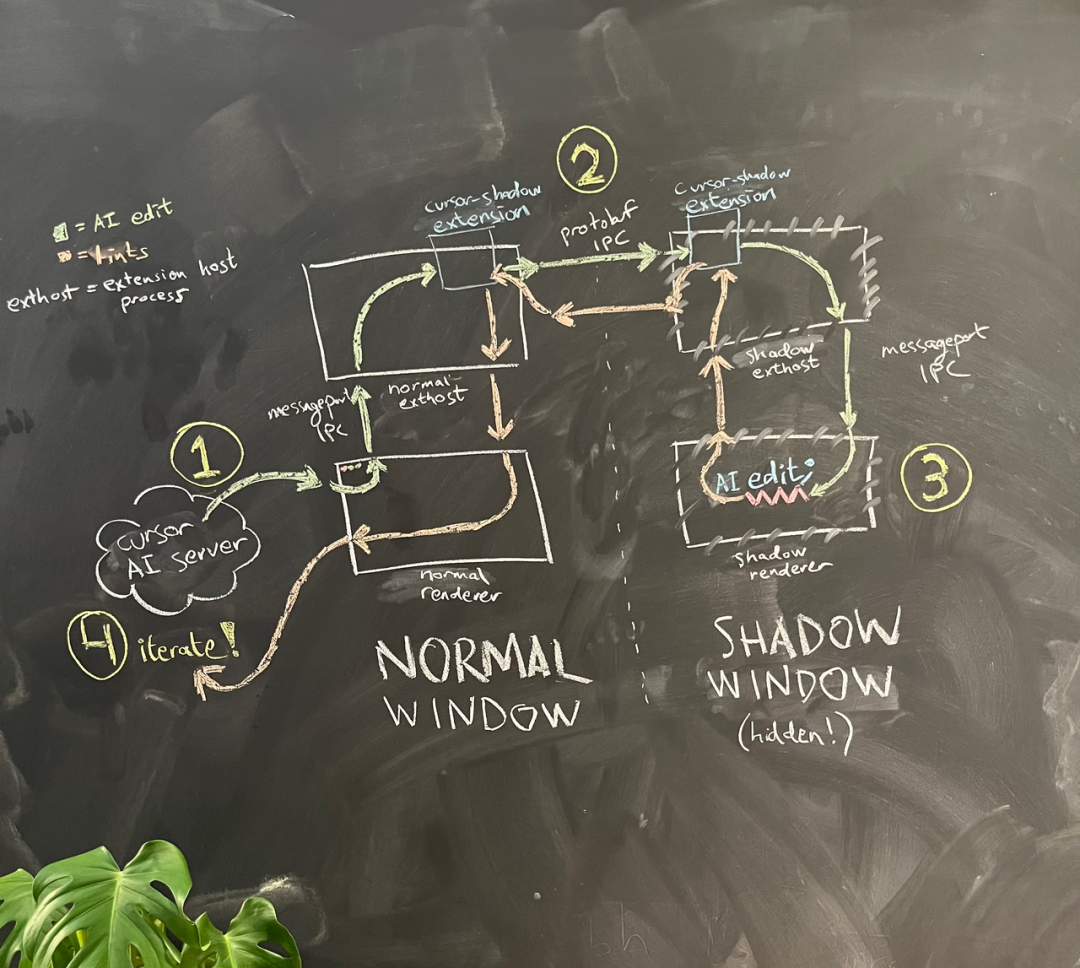 = AI edit
= lints
exthost = extension host
process
2
cursor-shadow
extension
protobuf
IPC
cursor-shadow
extension
messageport
IPC
normal
exthost
shadow
exthost
messageport
IPC
1
cursor
AI server
normal
renderer
AI edit;
3
shadow
renderer
4 iterate!
NORMAL
WINDOW
SHADOW
WINDOW
(hidden!)